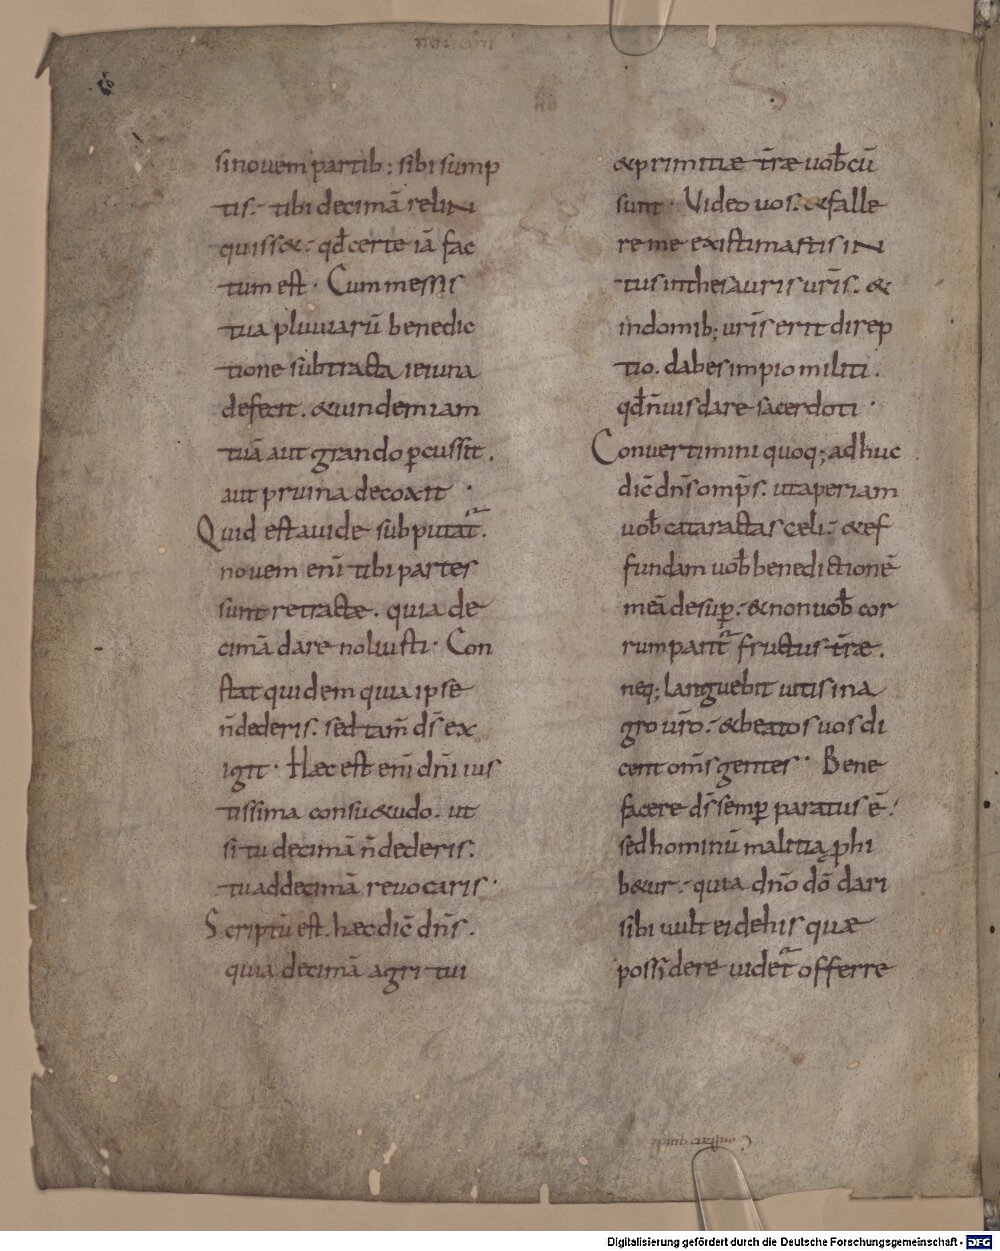 novem
sinovem partib; sibi sump
tis. tibi decimā relin
quiss&. qđ certe iā fac
tum est. Cum messis
tua pluuiarū benedic
tione subtracta ieiuna
defecit. &uindemiam
tuā aut grando ꝑcussit.
aut pruina decoxit.
Quid est auide subputat̄.
novem enī tibi partes
sunt retracte. quia de
cimā dare noluisti. Con
stat quidem quia ipse
ñ dederis. sed tam̄ ds̄ ex
igit. Haec est enī dn̄i ius
tissima consu&udo. ut
si tu decimā ñ dederis.
tu ad decimā revocaris.
Scriptū est. haec dic̄ dn̄s.
quia decimā agri tui
&primitiae tr̄ae uob̄cū
sunt. Uideo uos. &falle
re me existimastis in
tus in thesauris ur̄is. &
in domib; ur̄is erit direp
tio. dabes impio militi.
qđ ñ uis dare sacerdoti.
Convertimini quoq; adhuc
dic̄ dn̄s omp̄s. ut aperiam
uob̄ cataractas celi. &ef
fundam uob̄ benedictionē
meā desuꝑ. &non uob̄ cor
rumpant̄ fructus tr̄ae.
neq; languebit uitis in a
gro ur̄o. &beatos uos di
cent om̄s gentes. Bene
facere ds̄ semꝑ paratus ē.
sed hominū malitia ꝓhi
b&ur. quia dn̄o dō dari
sibi uult ei de his quae
possidere uidet̄ offerre
Constat quide
Digitalisierung gefördert durch die Deutsche Forschungsgemeinschaft - DFG